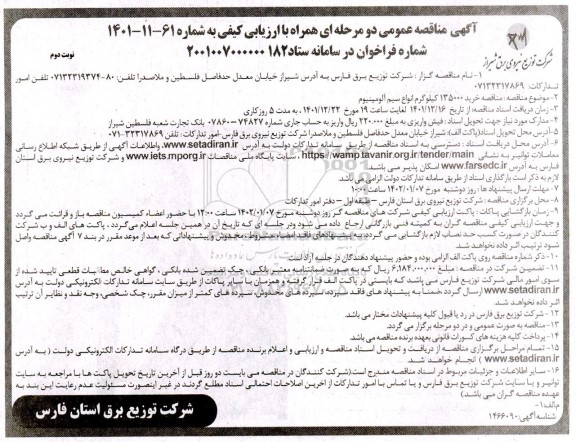 آگهی مناقصه عمومی دو مرحله ای همراه با ارزیابی کیفی به شماره ۶۱-۱۱-۱۴۰۱
شماره فراخوان در سامانه ستاد ۲۰۰۱۰۰۷۰۰۰۰۰۰۱۸۲
شرکت توزیع نیروی برق شیراز
نوبت دوم
۱-نام مناقصه گزار : شرکت توزیع برق فارس به آدرس شیراز خیابان معدل حدفاصل فلسطین و ملاصدرا تلفن: ۸۰-۰۷۱۳۲۳۱۹۳۷۴ تلفن امور
تدارکات: ۰۷۱۳۲۳۱۷۸۶۹
۲-موضوع مناقصه: مناقصه خرید ۱۳۵۰۰۰ کیلوگرم انواع سیم آلومینیوم
۳-زمان دریافت اسناد مناقصه: از تاریخ ۱۴۰۱/۱۲/۱۶ لغایت ساعت ۱۹ مورخ ۱۴۰۱/۱۲/۲۲ ، به مدت ۵ روز کاری
۴-مدارک مورد نیاز جهت تحویل اسناد : فیش واریزی به مبلغ ۲۲۰,۰۰۰ ریال واریز به حساب جاری شماره ۰۷۸۶۰۰۷۴۸۲۷ بانک تجارت شعبه فلسطین شیراز
۵-آدرس محل تحویل اسناد(پاکت الف): شیراز خیابان معدل حدفاصل فلسطین و ملاصدرا شرکت توزیع نیروی برق فارس-امور تدارکات ، تلفن: ۳۲۳۱۷۸۶۹-۰۷۱
۶-آدرس محل دریافت اسناد : دسترسی به اسناد مناقصه از طریق سامانه تدارکات دولت به آدرس www.setadiran.ir، واطلاعات آگهی از طریق شبکه اطلاع رسانی
معاملات توانیر به نشانی https://wamp.tavanir.org.ir/tender/main ، سایت پایگاه ملی مناقصات www.iets.mporg.ir و شرکت توزیع نیروی برق استان
فارس به آدرس www.farsedc.ir امکان پذیر می باشد.
لازم به ذکر است بارگذاری اسناد از طریق سامانه تدارکات دولت الزامی می باشد.
۷-مهلت ارسال پیشنهاد ها : روز دوشنبه مورخ ۱۴۰۲/۰۱/۰۷ ساعت ۱۰:۰۰
۸-محل برگزاری مناقصه : شرکت توزیع نیروی برق استان فارس - طبقه اول – دفتر امور تدارکات
۹-زمان بازگشایی پاکات : پاکت ارزیابی کیفی شرکت های مناقصه گر روز دوشنبه مورخ ۱۴۰۲/۰۱/۰۷ ساعت ۱۲:۰۰ با حضور اعضاء کمیسیون مناقصه باز و قرائت می گردد
و جهت ارزیابی کیفی مناقصه گران به کمیته فنی بازرگانی ارجاع داده می شود ودر جلسه ای که تاریخ آن در همین جلسه اعلام می گردد ، پاکت های الف و ب شرکت
کنندگان در صورت کسب حد نصاب لازم بازگشایی می گردد
شود ترتیب اثر داده نخواهد شد.
۱۰-ذکر شماره مناقصه روی پاکت الف الزامی بوده و حضور پیشنهاد دهندگان در جلسه آزاد است
۱۱-تضمین شرکت در مناقصه : مبلغ ۶,۱۸۴,۰۰۰,۰۰۰ ریال که به صورت ضمانتنامه معتبر بانکی ، چک تضمین شده بانکی ، گواهی خالص مطالبات قطعی تایید شده از
سوی امور مالی شرکت توزیع فارس می باشد که بایستی در پاکت الف قرار گرفته و همزمان با سایر پاکات از طریق سایت سامانه تدارکات الکترونیکی دولت به آدرس
www.setadiran.ir ارسال گردد.ضمنا به پیشنهاد های فاقد سپرده ، سپرده های مخدوش، سپرده های کمتر از میزان مقرر، چک شخصی، وجه نقد و نظایر آن ترتیب
اثر داده نخواهد شد.
۱۲-شرکت توزیع برق فارس در رد یا قبول کلیه پیشنهادات مختار می باشد.
۱۳-مناقصه به صورت عمومی و در دو مرحله برگزار می گردد.
۱۴-پرداخت کلیه هزینه های کسورات قانونی بعهده برنده مناقصه می باشد
۱۵-تمام مراحل برگزاری مناقصه از دریافت و تحویل اسناد مناقصه و ارزیابی و اعلام برنده مناقصه از طریق درگاه سامانه تدارکات الکترونیکی دولت ( به آدرس
www.setadiran.ir ) انجام خواهد شد.
۱۶-سایر اطلاعات و جزئیات مربوط در اسناد مناقصه مندرج است(شرکت کنندگان در مناقصه می بایست دو روز قبل از آخرین تاریخ تحویل پاکت ها با مراجعه به سایت
توانیر و یا سایت شرکت توزیع برق فارس و یا تماس با امور تدارکات از آخرین اصلاحات احتمالی اسناد مطلع گردند در غیر اینصورت مسئولیت عدم رعایت این بند به
عهده مناقصه گران می باشد)
م الف: ۱
شناسه آگهی: ۱۴۶۶۰۹۰
شرکت توزیع برق استان فارس